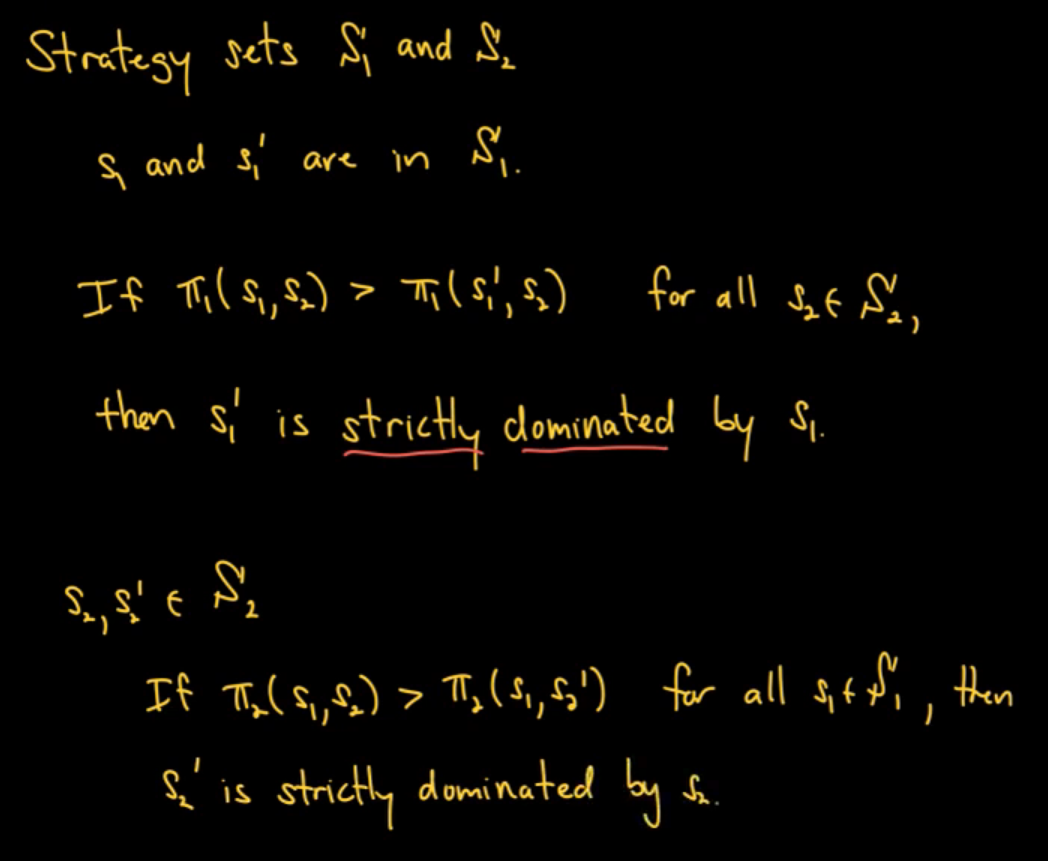 Strategy sets S₁ and S₂
s₁ and s₁' are in S₁.
If π₁(s₁,s₂) > π₁(s₁',s₂) for all s₂ ∈ S₂,
then s₁' is strictly dominated by s₁.
s₂,s₂' ∈ S₂
If π₂(s₁,s₂) > π₂(s₁,s₂') for all s₁ ∈ S₁, then
s₂' is strictly dominated by s₂.